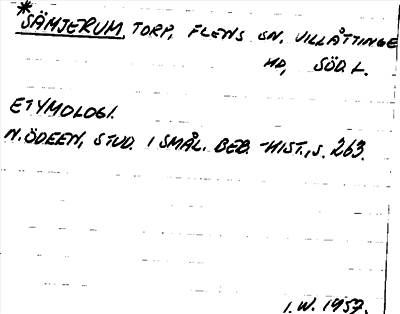 *
SÄMJERUM, TORP, FLENS SN, VILLÅTTINGE
HD, SÖD. L.
ETYMOLOGI.
N. ÖDEEN, STUD. I SMÅL. BEB. -HIST., S. 263.
I. W. 1957.